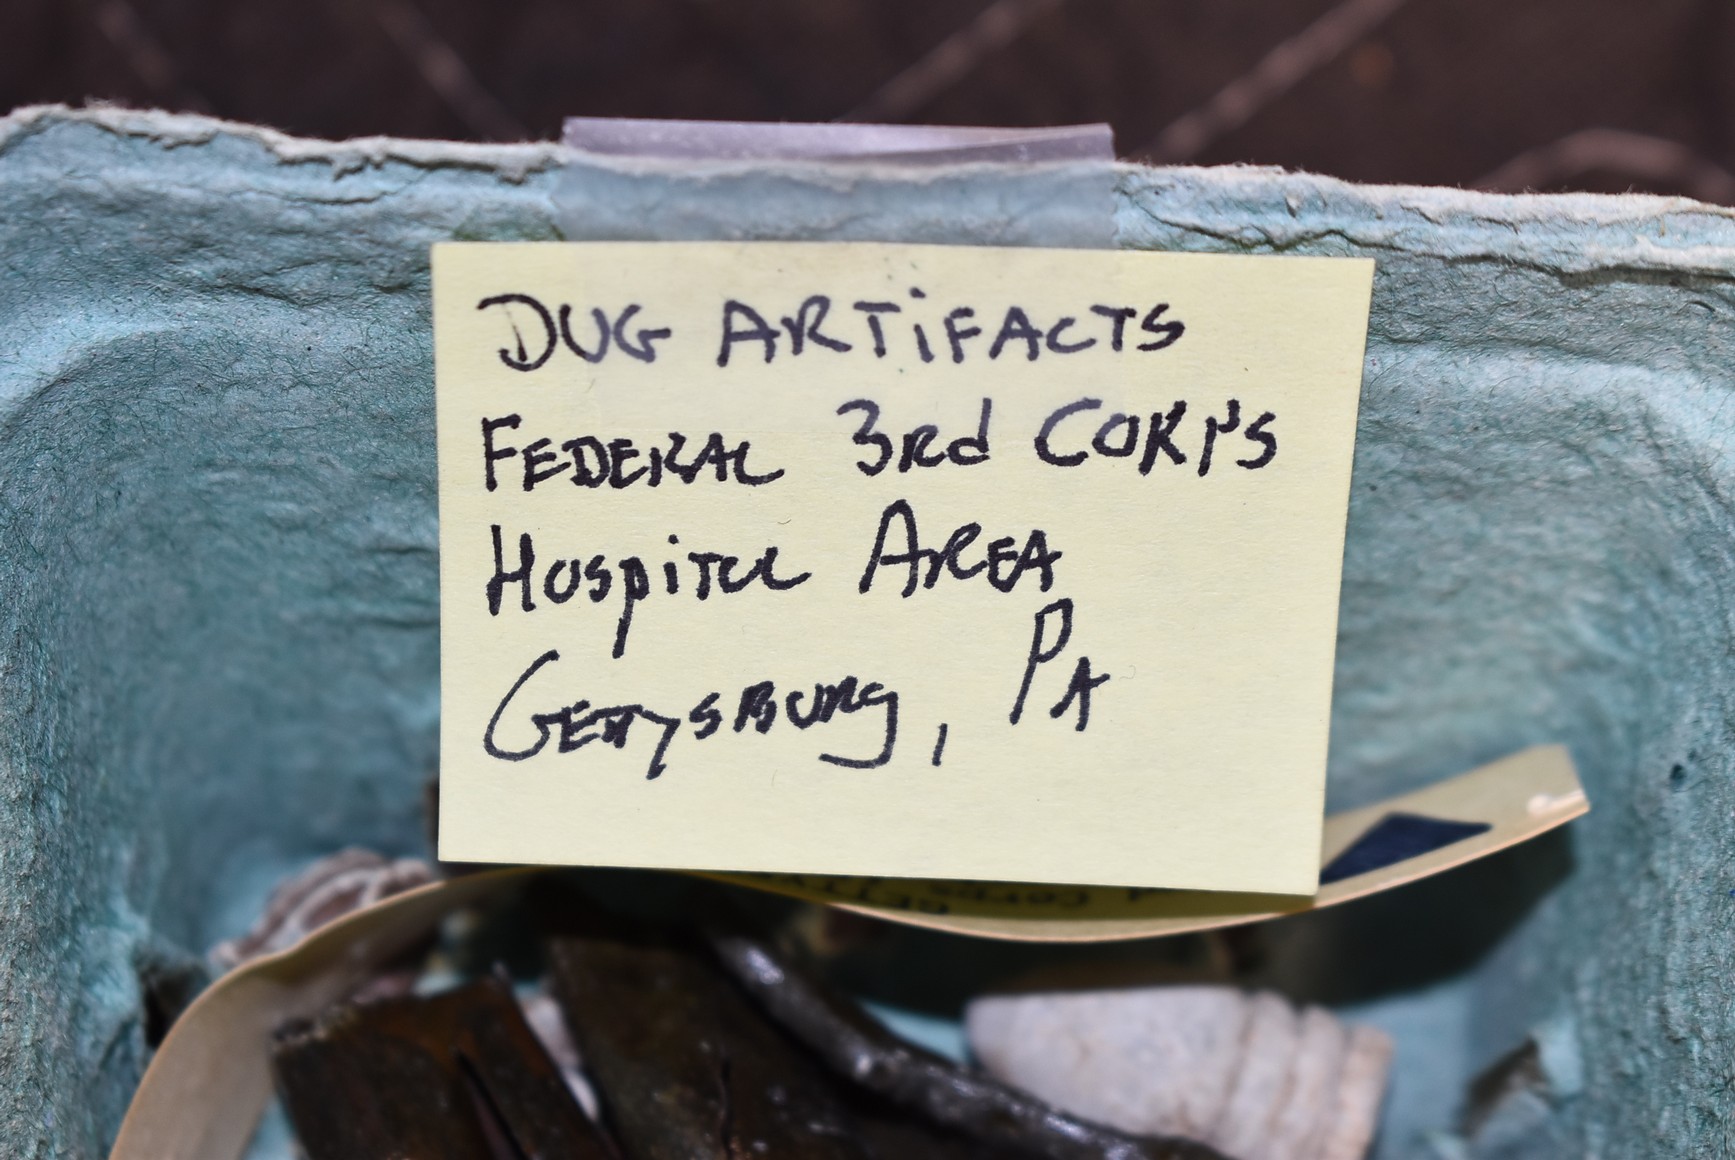 DUG ARTiFACTS
FEDERAL 3rd CORPS
HospiTaL AREA
GETTYSBURG, PA